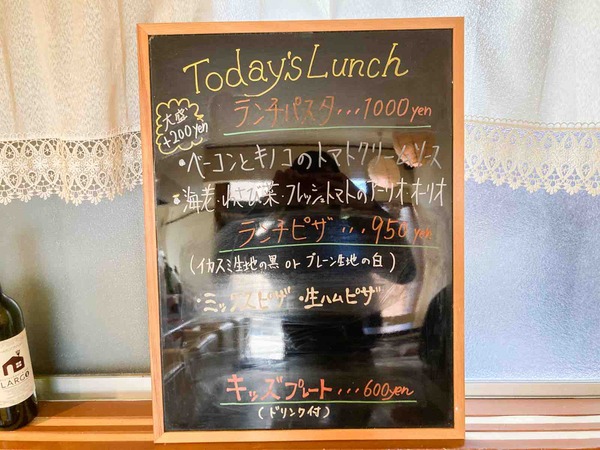 Today's Lunch
大盛
+200yen
ランチパスタ...1000yen
・ベーコンとキノコのトマトクリームソース
海老・わさび菜・フレッシュトマトのアーリオオーリオ
ランチピザ...950yen
(イカスミ生地の黒 or プレーン生地の白)
・ミックスピザ ・生ハムピザ
キッズプレート...600yen
(ドリンク付)
LARGO